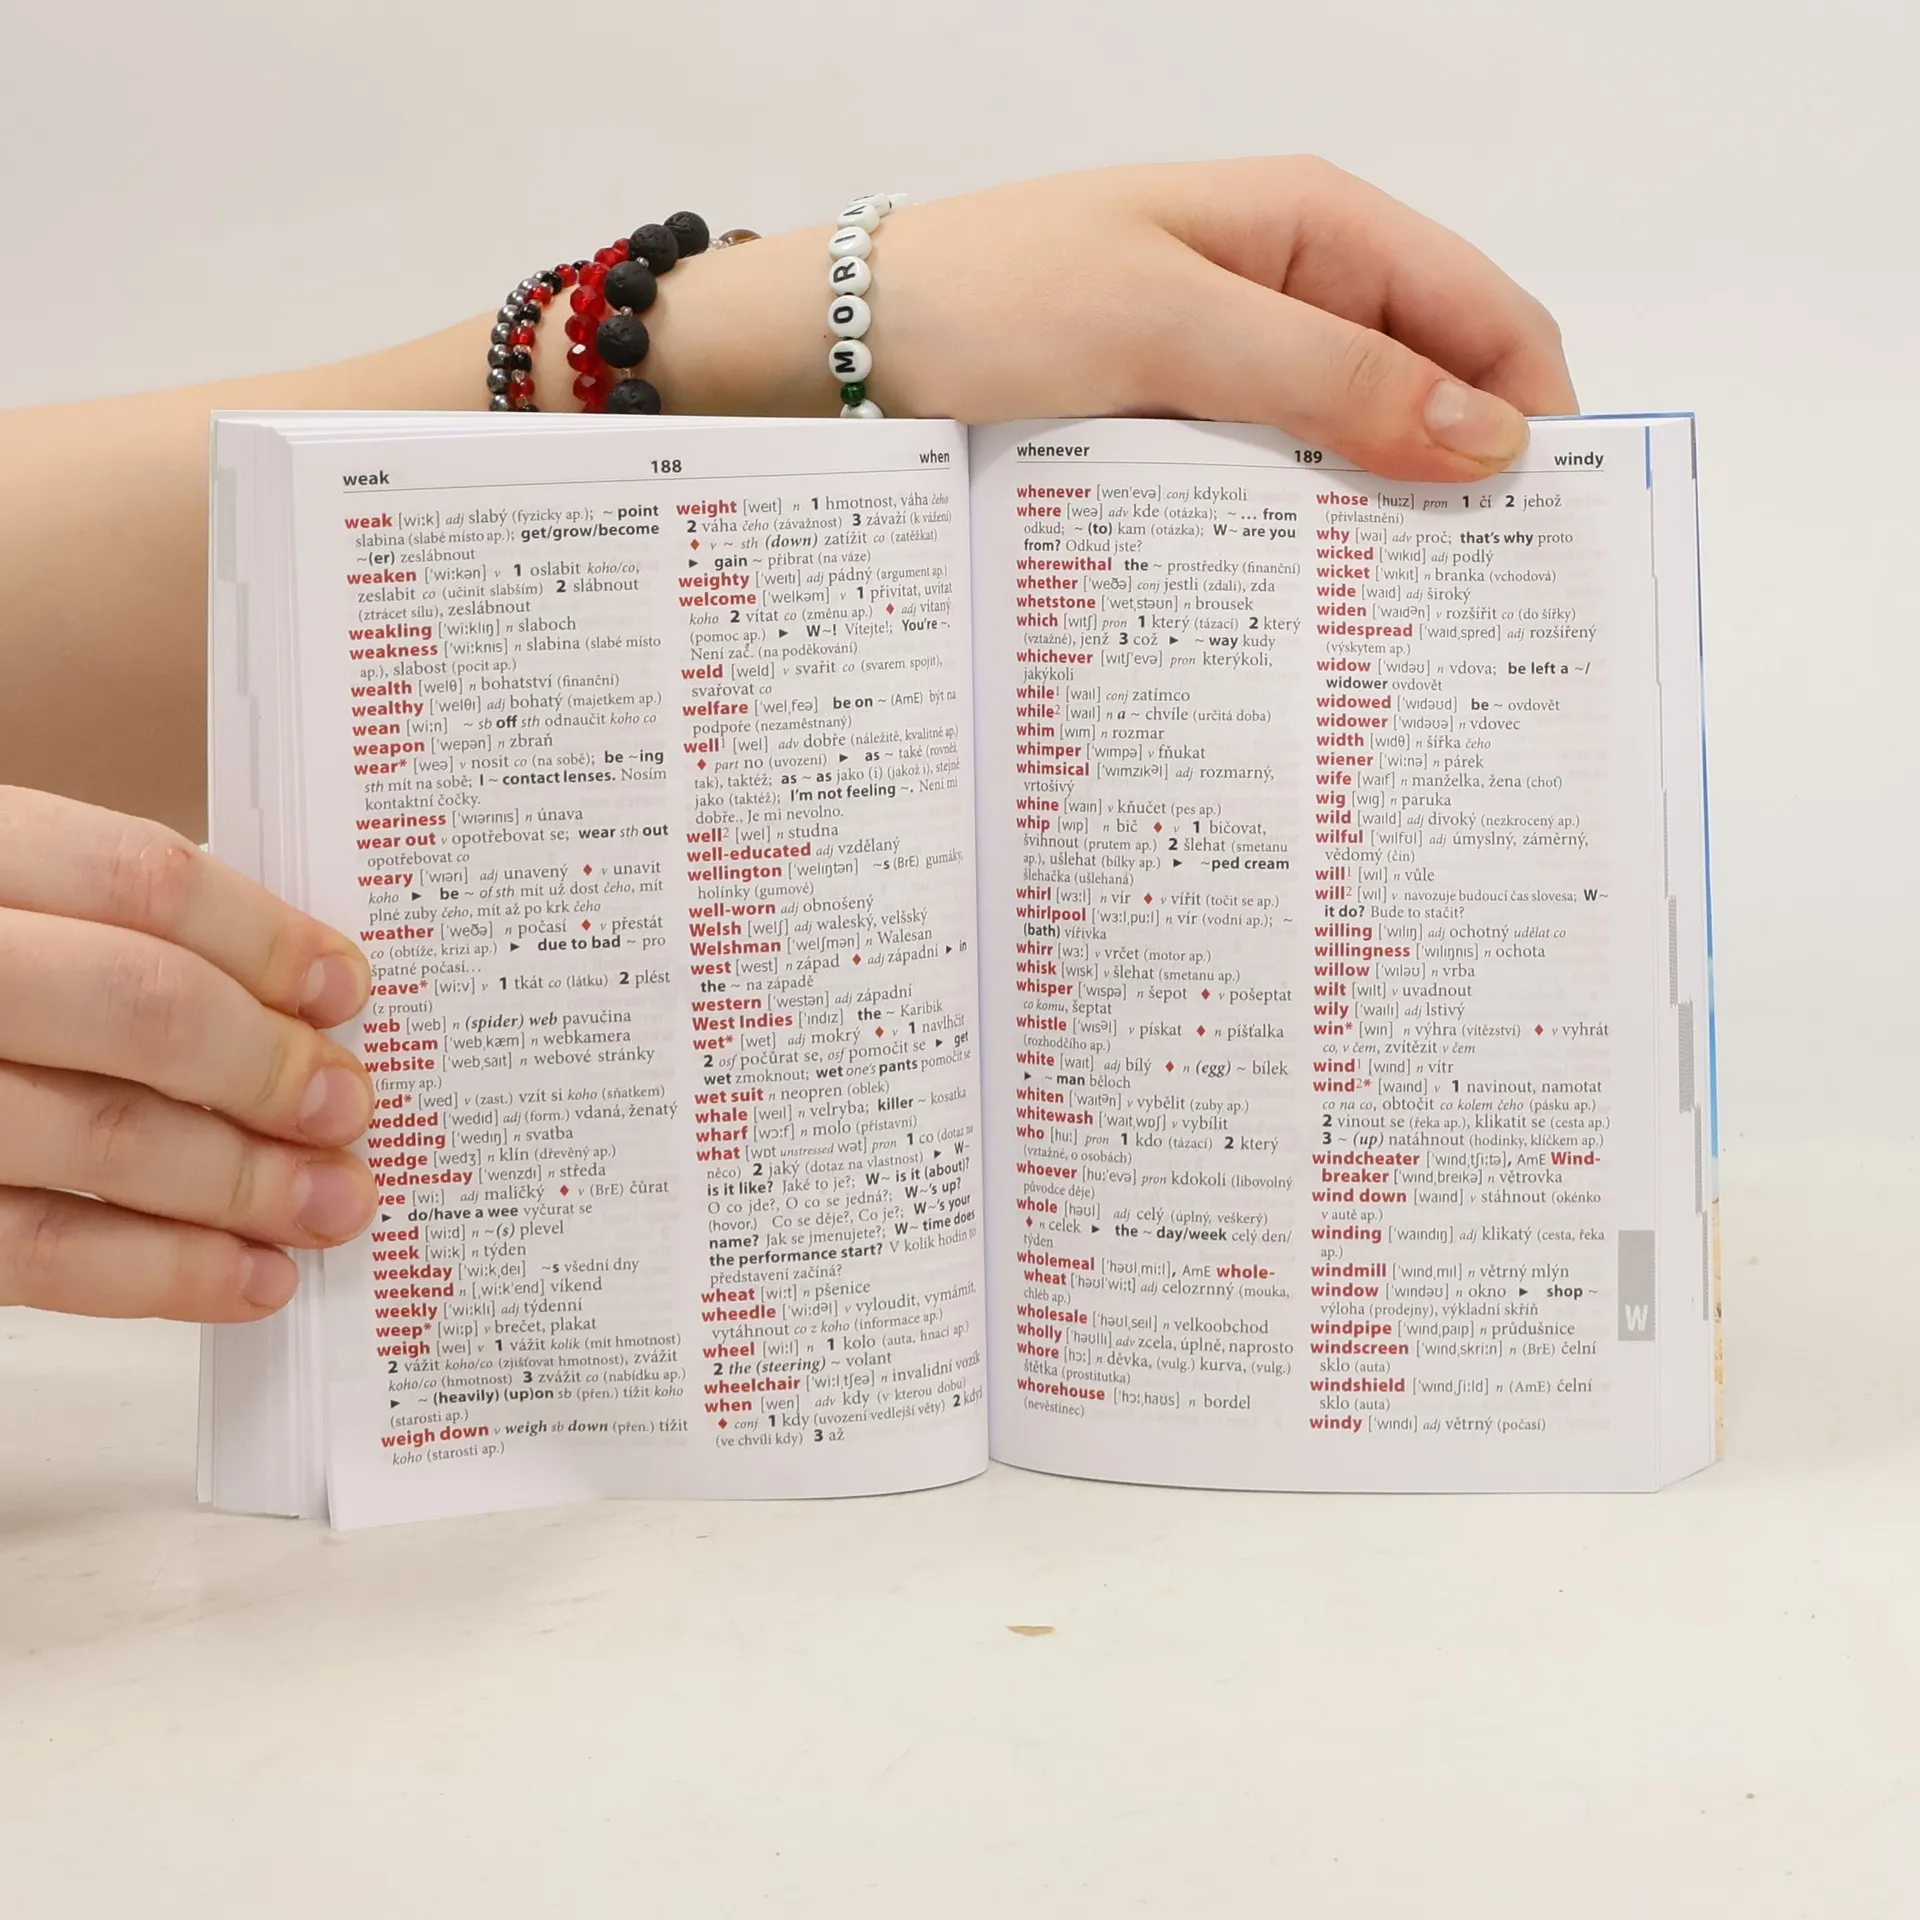 MORIA
weak 188 when
weak [wiːk] adj slabý (fyzicky ap.); ~ point
slabina (slabé místo ap.); get/grow/become
~(er) zeslábnout
weaken [ˈwiːkən] v 1 oslabit koho/co,
zeslabit co (učinit slabším) 2 slábnout
(ztrácet sílu), zeslábnout
weakling [ˈwiːklɪŋ] n slaboch
weakness [ˈwiːknɪs] n slabina (slabé místo
ap.), slabost (pocit ap.)
wealth [welθ] n bohatství (finanční)
wealthy [ˈwelθɪ] adj bohatý (majetkem ap.)
wean [wiːn] ~ sb off sth odnaučit koho co
weapon [ˈwepən] n zbraň
wear* [weə] v nosit co (na sobě); be ~ing
sth mít na sobě; I ~ contact lenses. Nosím
kontaktní čočky.
weariness [ˈwɪərɪnɪs] n únava
wear out v opotřebovat se; wear sth out
opotřebovat co
weary [ˈwɪərɪ] adj unavený ♦ v unavit
koho ► be ~ of sth mít už dost čeho, mít
plné zuby čeho, mít až po krk čeho
weather [ˈweðə] n počasí ♦ v přestát
co (obtíže, krizi ap.) ► due to bad ~ pro
špatné počasí…
weave* [wiːv] v 1 tkát co (látku) 2 plést
(z proutí)
web [web] n (spider) web pavučina
webcam [ˈwebˌkæm] n webkamera
website [ˈwebˌsaɪt] n webové stránky
(firmy ap.)
wed* [wed] v (zast.) vzít si koho (sňatkem)
wedded [ˈwedɪd] adj (form.) vdaná, ženatý
wedding [ˈwedɪŋ] n svatba
wedge [wedʒ] n klín (dřevěný ap.)
Wednesday [ˈwenzdɪ] n středa
wee [wiː] adj maličký ♦ v (BrE) čůrat
► do/have a wee vyčurat se
weed [wiːd] n ~(s) plevel
week [wiːk] n týden
weekday [ˈwiːkˌdeɪ] ~s všední dny
weekend n [ˌwiːkˈend] víkend
weekly [ˈwiːklɪ] adj týdenní
weep* [wiːp] v brečet, plakat
weigh [weɪ] v 1 vážit kolik (mít hmotnost)
2 vážit koho/co (zjišťovat hmotnost), zvážit
koho/co (hmotnost) 3 zvážit co (nabídku ap.)
► ~ (heavily) (up)on sb (přen.) tížit koho
(starosti ap.)
weigh down v weigh sb down (přen.) tížit
koho (starosti ap.)
weight [weɪt] n 1 hmotnost, váha čeho
2 váha čeho (závažnost) 3 závaží (k vážení)
♦ v ~ sth (down) zatížit co (zatěžkat)
► gain ~ přibrat (na váze)
weighty [ˈweɪtɪ] adj pádný (argument ap.)
welcome [ˈwelkəm] v 1 přivítat, uvítat
koho 2 vítat co (změnu ap.) ♦ adj vítaný
(pomoc ap.) ► W~! Vítejte!; You're ~.
Není zač. (na poděkování)
weld [weld] v svařit co (svarem spojit),
svařovat co
welfare [ˈwelˌfeə] be on ~ (AmE) být na
podpoře (nezaměstnaný)
well¹ [wel] adv dobře (náležitě, kvalitně ap.)
♦ part no (uvození) ► as ~ také (rovněž
tak), taktéž; as ~ as jako (i) (jakož i), stejně
jako (taktéž); I'm not feeling ~. Není mi
dobře., Je mi nevolno.
well² [wel] n studna
well-educated adj vzdělaný
wellington [ˈwelɪŋtən] ~s (BrE) gumáky,
holínky (gumové)
well-worn adj obnošený
Welsh [welʃ] adj waleský, velšský
Welshman [ˈwelʃmən] n Walesan
west [west] n západ ♦ adj západní ► in
the ~ na západě
western [ˈwestən] adj západní
West Indies [ˈɪndɪz] the ~ Karibik
wet* [wet] adj mokrý ♦ v 1 navlhčit
2 osf počůrat se, osf pomočit se ► get
wet zmoknout; wet one's pants pomočit se
wet suit n neopren (oblek)
whale [weɪl] n velryba; killer ~ kosatka
wharf [wɔːf] n molo (přístavní)
what [wɒt unstressed wət] pron 1 co (dotaz na
něco) 2 jaký (dotaz na vlastnost) ► W~
is it like? Jaké to je?; W~ is it (about)?
O co jde?, O co se jedná?; W~'s up?
(hovor.) Co se děje?, Co je?; W~'s your
name? Jak se jmenujete?; W~ time does
the performance start? V kolik hodin to
představení začíná?
wheat [wiːt] n pšenice
wheedle [ˈwiːdəl] v vyloudit, vymámit,
vytáhnout co z koho (informace ap.)
wheel [wiːl] n 1 kolo (auta, hnací ap.)
2 the (steering) ~ volant
wheelchair [ˈwiːlˌtʃeə] n invalidní vozík
when [wen] adv kdy (v kterou dobu)
♦ conj 1 kdy (uvození vedlejší věty) 2 když
(ve chvíli kdy) 3 až
whenever 189 windy
whenever [wenˈevə] conj kdykoli
where [weə] adv kde (otázka); ~ … from
odkud; ~ (to) kam (otázka); W~ are you
from? Odkud jste?
wherewithal the ~ prostředky (finanční)
whether [ˈweðə] conj jestli (zdali), zda
whetstone [ˈwetˌstəʊn] n brousek
which [wɪtʃ] pron 1 který (tázací) 2 který
(vztažné), jenž 3 což ► ~ way kudy
whichever [wɪtʃˈevə] pron kterýkoli,
jakýkoli
while¹ [waɪl] conj zatímco
while² [waɪl] n a ~ chvíle (určitá doba)
whim [wɪm] n rozmar
whimper [ˈwɪmpə] v fňukat
whimsical [ˈwɪmzɪkəl] adj rozmarný,
vrtošivý
whine [waɪn] v kňučet (pes ap.)
whip [wɪp] n bič ♦ v 1 bičovat,
švihnout (prutem ap.) 2 šlehat (smetanu
ap.), ušlehat (bílky ap.) ► ~ped cream
šlehačka (ušlehaná)
whirl [wɜːl] n vír ♦ v vířit (točit se ap.)
whirlpool [ˈwɜːlˌpuːl] n vír (vodní ap.); ~
(bath) vířivka
whirr [wɜː] v vrčet (motor ap.)
whisk [wɪsk] v šlehat (smetanu ap.)
whisper [ˈwɪspə] n šepot ♦ v pošeptat
co komu, šeptat
whistle [ˈwɪsəl] v pískat ♦ n píšťalka
(rozhodčího ap.)
white [waɪt] adj bílý ♦ n (egg) ~ bílek
► ~ man běloch
whiten [ˈwaɪtən] v vybělit (zuby ap.)
whitewash [ˈwaɪtˌwɒʃ] v vybílit
who [huː] pron 1 kdo (tázací) 2 který
(vztažné, o osobách)
whoever [huːˈevə] pron kdokoli (libovolný
původce děje)
whole [həʊl] adj celý (úplný, veškerý)
♦ n celek ► the ~ day/week celý den/
týden
wholemeal [ˈhəʊlˌmiːl], AmE whole-
wheat [ˈhəʊlˈwiːt] adj celozrnný (mouka,
chléb ap.)
wholesale [ˈhəʊlˌseɪl] n velkoobchod
wholly [ˈhəʊllɪ] adv zcela, úplně, naprosto
whore [hɔː] n děvka, (vulg.) kurva, (vulg.)
štětka (prostitutka)
whorehouse [ˈhɔːˌhaʊs] n bordel
(nevěstinec)
whose [huːz] pron 1 čí 2 jehož
(přivlastnění)
why [waɪ] adv proč; that's why proto
wicked [ˈwɪkɪd] adj podlý
wicket [ˈwɪkɪt] n branka (vchodová)
wide [waɪd] adj široký
widen [ˈwaɪdən] v rozšířit co (do šířky)
widespread [ˈwaɪdˌspred] adj rozšířený
(výskytem ap.)
widow [ˈwɪdəʊ] n vdova; be left a ~/
widower ovdovět
widowed [ˈwɪdəʊd] be ~ ovdovět
widower [ˈwɪdəʊə] n vdovec
width [wɪdθ] n šířka čeho
wiener [ˈwiːnə] n párek
wife [waɪf] n manželka, žena (choť)
wig [wɪg] n paruka
wild [waɪld] adj divoký (nezkrocený ap.)
wilful [ˈwɪlfʊl] adj úmyslný, záměrný,
vědomý (čin)
will¹ [wɪl] n vůle
will² [wɪl] v navozuje budoucí čas slovesa; W~
it do? Bude to stačit?
willing [ˈwɪlɪŋ] adj ochotný udělat co
willingness [ˈwɪlɪŋnɪs] n ochota
willow [ˈwɪləʊ] n vrba
wilt [wɪlt] v uvadnout
wily [ˈwaɪlɪ] adj lstivý
win* [wɪn] n výhra (vítězství) ♦ v vyhrát
co, v čem, zvítězit v čem
wind¹ [wɪnd] n vítr
wind²* [waɪnd] v 1 navinout, namotat
co na co, obtočit co kolem čeho (pásku ap.)
2 vinout se (řeka ap.), klikatit se (cesta ap.)
3 ~ (up) natáhnout (hodinky, klíčkem ap.)
windcheater [ˈwɪndˌtʃiːtə], AmE Wind-
breaker [ˈwɪndˌbreɪkə] n větrovka
wind down [waɪnd] v stáhnout (okénko
v autě ap.)
winding [ˈwaɪndɪŋ] adj klikatý (cesta, řeka
ap.)
windmill [ˈwɪndˌmɪl] n větrný mlýn
window [ˈwɪndəʊ] n okno ► shop ~
výloha (prodejny), výkladní skříň
windpipe [ˈwɪndˌpaɪp] n průdušnice
windscreen [ˈwɪndˌskriːn] n (BrE) čelní
sklo (auta)
windshield [ˈwɪndˌʃiːld] n (AmE) čelní
sklo (auta)
windy [ˈwɪndɪ] adj větrný (počasí)
W